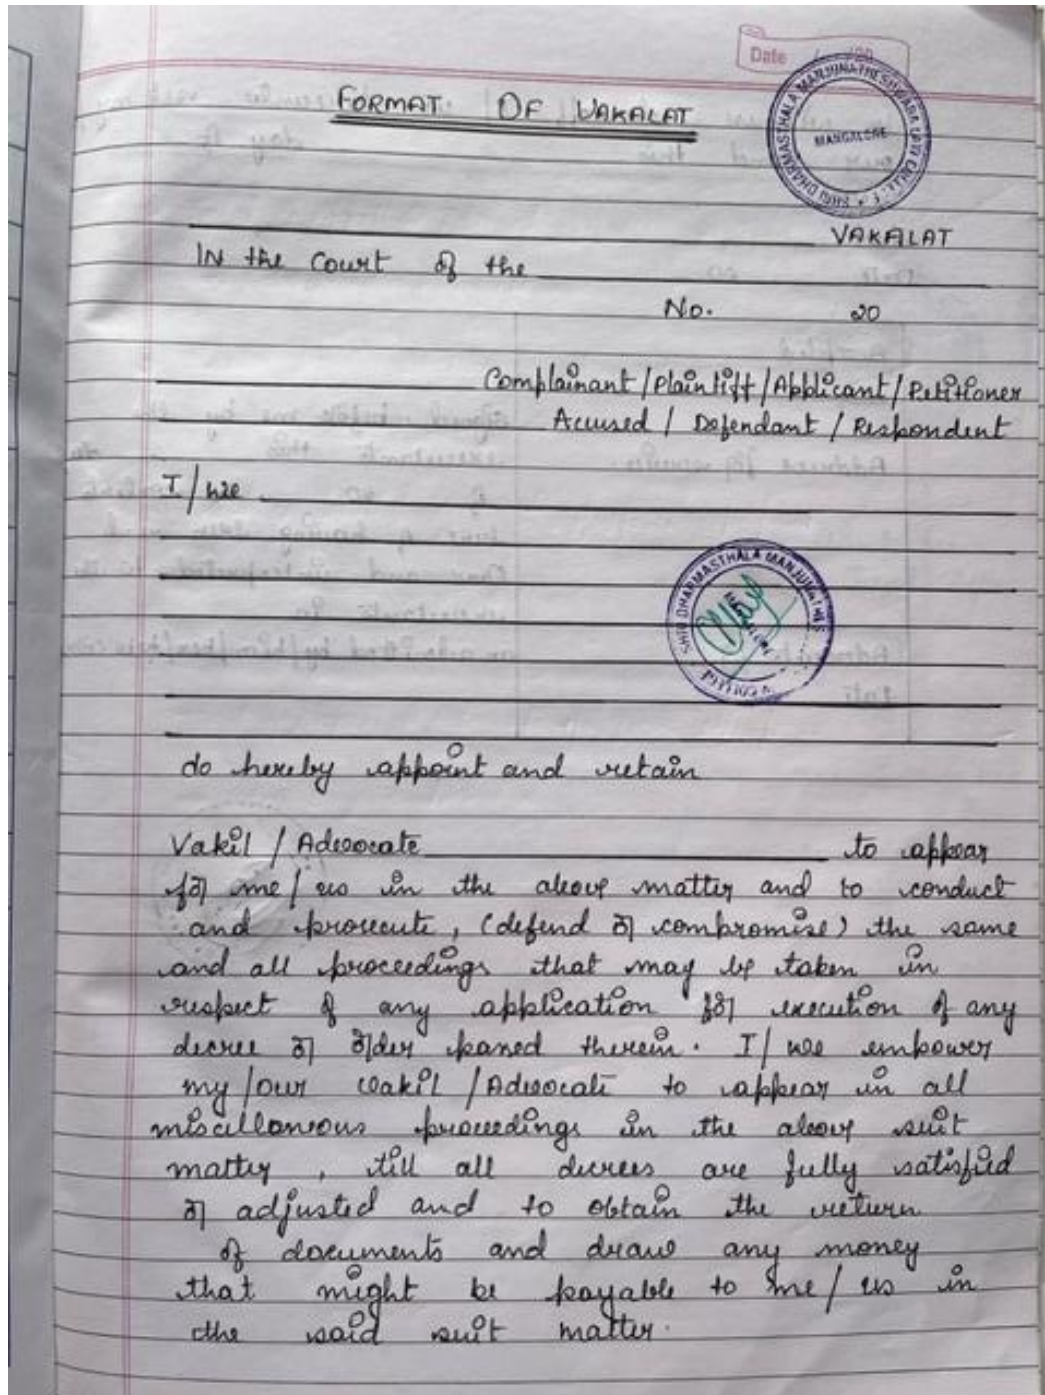 Date
FORMAT OF VAKALAT
SHRI DHARMASTHALA MANJUNATHESHWARA LAW COLLEGE
MANGALORE
VAKALAT
IN the Court of the
No. 20
Complainant/Plaintiff/Applicant/Petitioner
Accused / Defendant / Respondent
I/we
SHRI DHARMASTHALA MANJUNATHES
do hereby appoint and retain
Vakil / Advocate to appear
for me/us in the above matter and to conduct
and prosecute, (defend or compromise) the same
and all proceedings that may be taken in
respect of any application for execution of any
decree or order passed therein. I/we empower
my/our vakil/Advocate to appear in all
miscellaneous proceedings in the above suit
matter, till all decrees are fully satisfied
or adjusted and to obtain the return
of documents and draw any money
that might be payable to me/us in
the said suit matter.